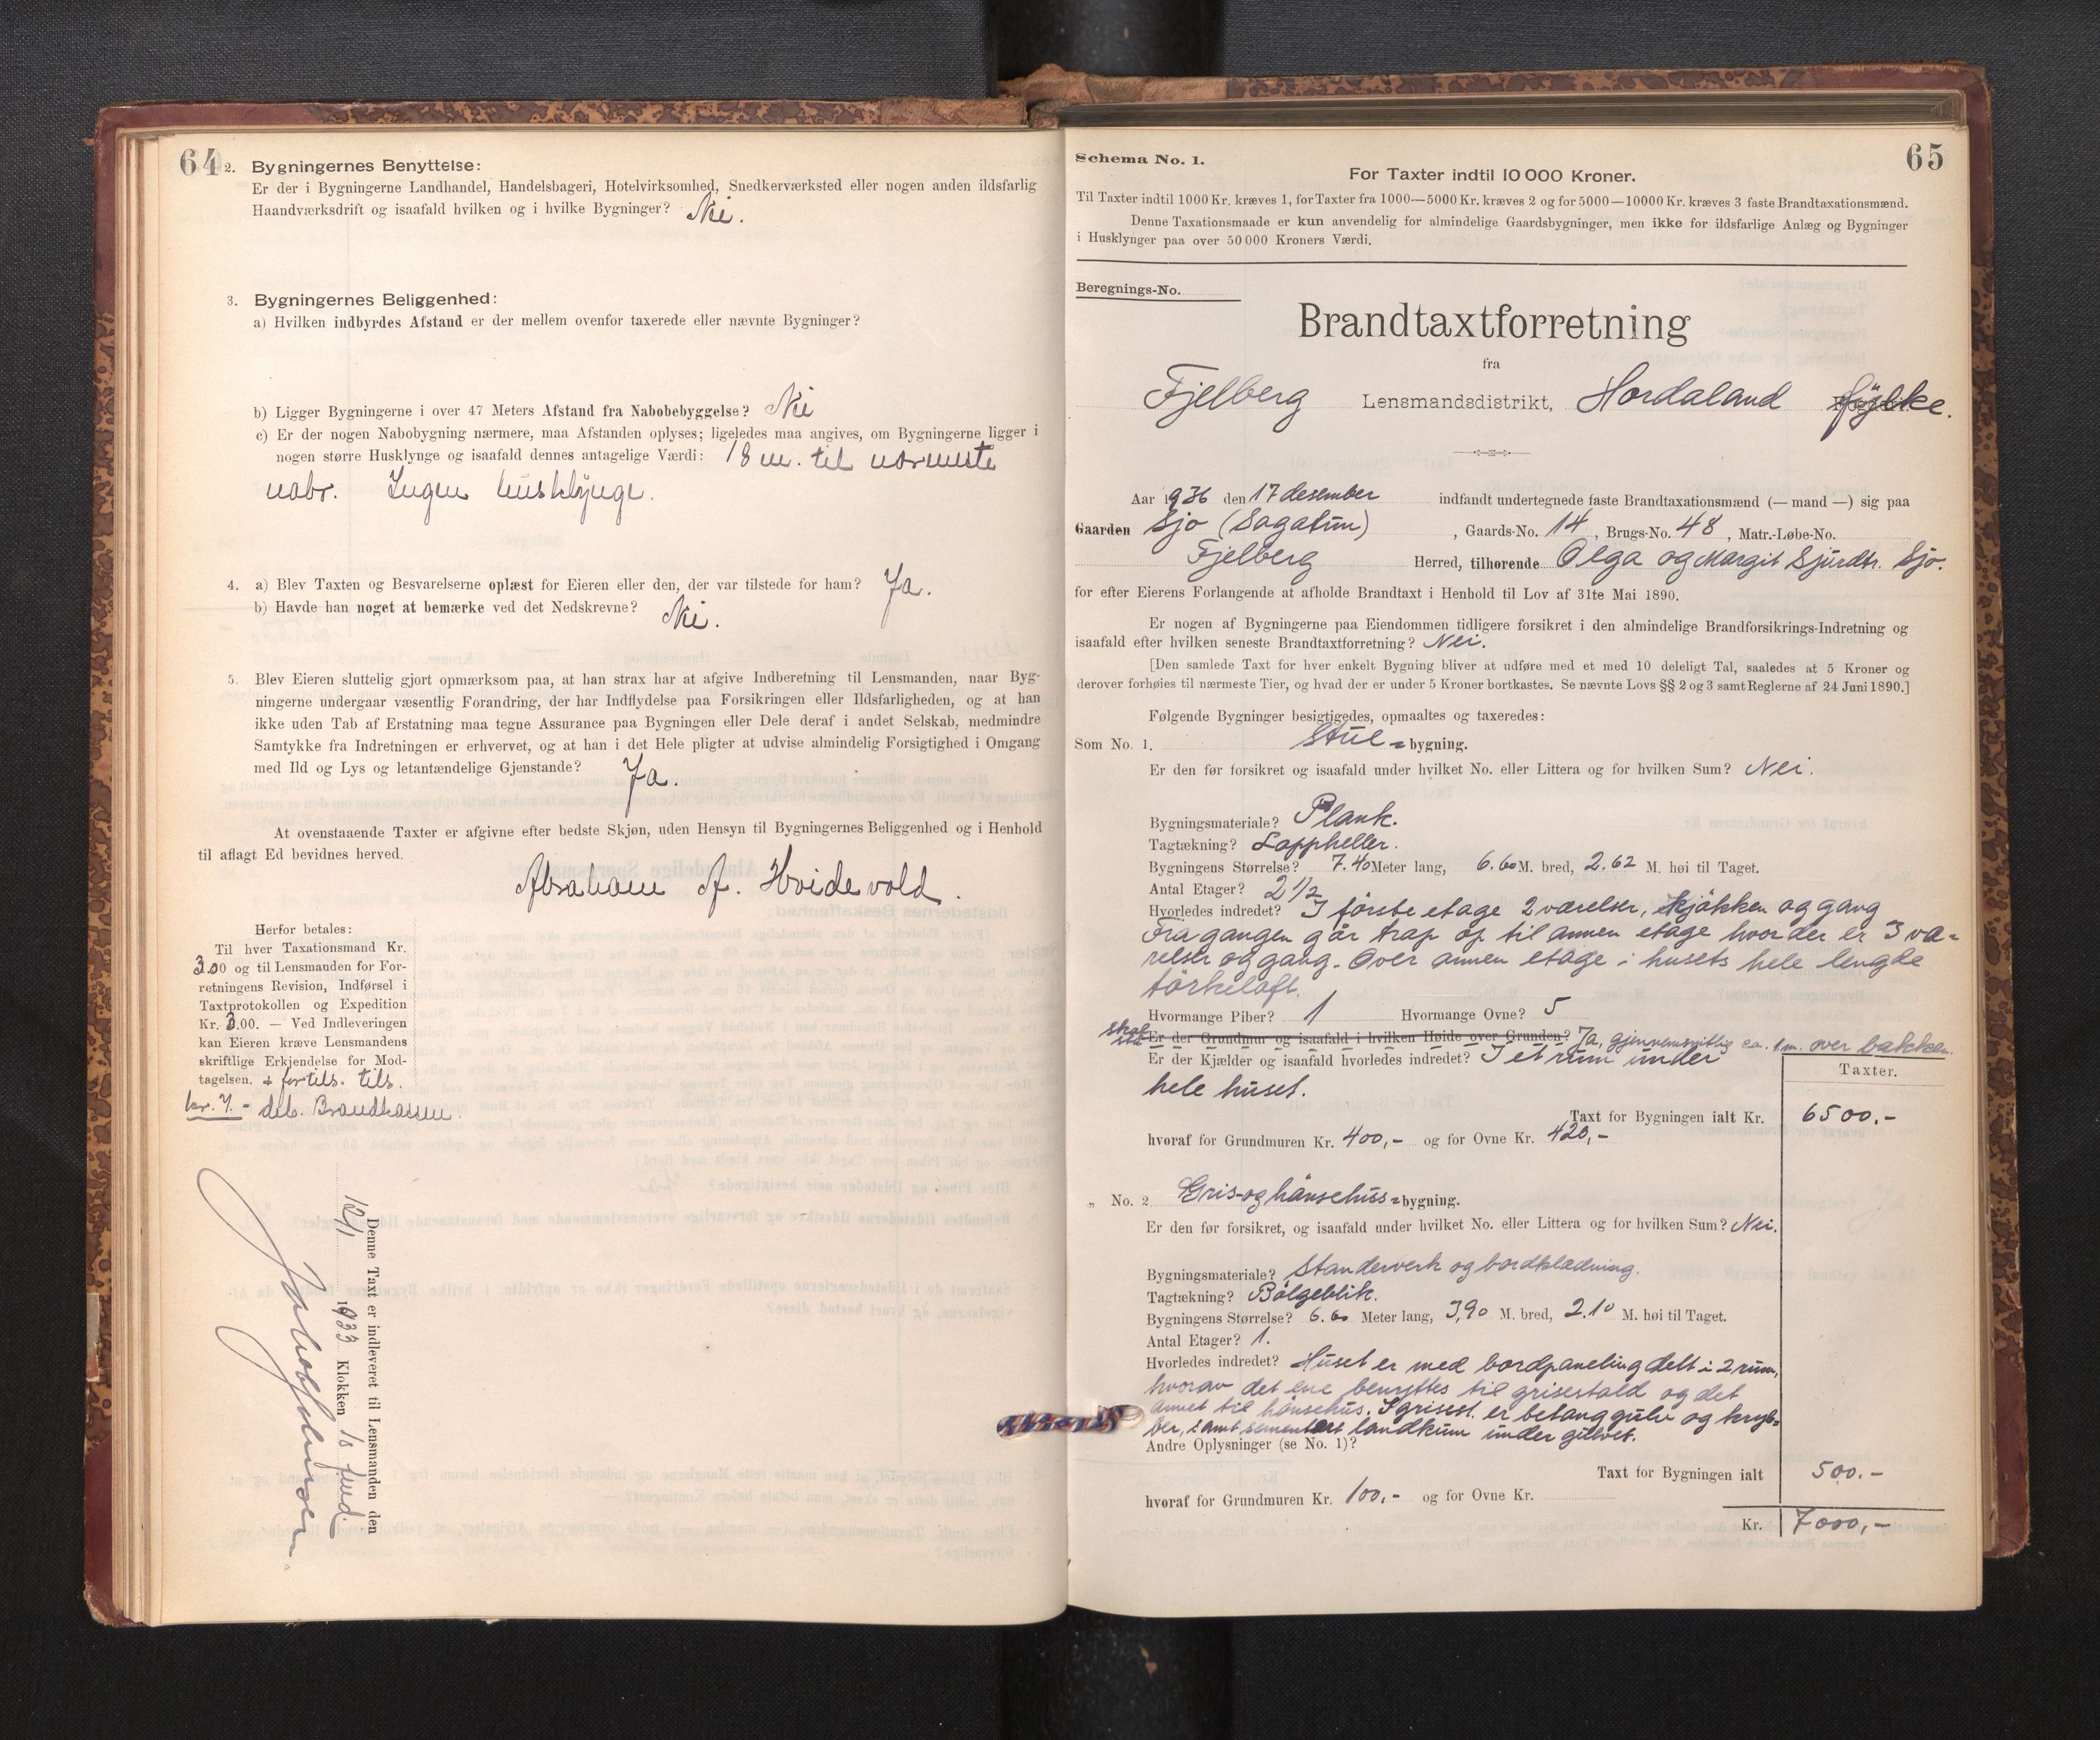 64
2. Bygningernes Benyttelse:
Er der i Bygningerne Landhandel, Handelsbageri, Hotelvirksomhed, Snedkerværksted eller nogen anden ildsfarlig
Haandværksdrift og isaafald hvilken og i hvilke Bygninger? Nei.
3. Bygningernes Beliggenhed:
a) Hvilken indbyrdes Afstand er der mellem ovenfor taxerede eller nævnte Bygninger?
b) Ligger Bygningerne i over 47 Meters Afstand fra Nabobebyggelse? Nei
c) Er der nogen Nabobygning nærmere, maa Afstanden oplyses; ligeledes maa angives, om Bygningerne ligger i
nogen større Husklynge og isaafald dennes antagelige Værdi: 18 m. til nærmeste
nabr. Ingen husklynge.
4. a) Blev Taxten og Besvarelserne oplæst for Eieren eller den, der var tilstede for ham? Ja.
b) Havde han noget at bemærke ved det Nedskrevne? Nei.
5. Blev Eieren sluttelig gjort opmærksom paa, at han strax har at afgive Indberetning til Lensmanden, naar Byg-
ningerne undergaar væsentlig Forandring, der har Indflydelse paa Forsikringen eller Ildsfarligheden, og at han
ikke uden Tab af Erstatning maa tegne Assurance paa Bygningen eller Dele deraf i andet Selskab, medmindre
Samtykke fra Indretningen er erhvervet, og at han i det Hele pligter at udvise almindelig Forsigtighed i Omgang
med Ild og Lys og letantændelige Gjenstande? Ja.
At ovenstaaende Taxter er afgivne efter bedste Skjøn, uden Hensyn til Bygningernes Beliggenhed og i Henhold
til aflagt Ed bevidnes herved.
Abraham A. Hvidevold.
Herfor betales:
Til hver Taxationsmand Kr.
3.00 og til Lensmanden for For-
retningens Revision, Indførsel i
Taxtprotokollen og Expedition
Kr. 3.00. — Ved Indleveringen
kan Eieren kræve Lensmandens
skriftlige Erkjendelse for Mod-
tagelsen. + for tils. tils.
kr. 7.- deb. Brandkassen.
Denne Taxt er indleveret til Lensmanden den
12/1 1933 Klokken 10 fmd.
65
Schema No. 1.
For Taxter indtil 10 000 Kroner.
Til Taxter indtil 1000 Kr. kræves 1, for Taxter fra 1000—5000 Kr. kræves 2 og for 5000—10000 Kr. kræves 3 faste Brandtaxationsmænd.
Denne Taxationsmaade er kun anvendelig for almindelige Gaardsbygninger, men ikke for ildsfarlige Anlæg og Bygninger
i Husklynger paa over 50 000 Kroners Værdi.
Beregnings-No.
Brandtaxtforretning
fra
Fjelberg Lensmandsdistrikt, Hordaland fylke.
Aar 1936 den 17 desember indfandt undertegnede faste Brandtaxationsmænd (— mand —) sig paa
Gaarden Sjo (Sagatun), Gaards-No. 14, Brugs-No. 48, Matr.-Løbe-No.
Fjelberg Herred, tilhørende Olga og Margit Sjurdtr. Sjo.
for efter Eierens Forlangende at afholde Brandtaxt i Henhold til Lov af 31te Mai 1890.
Er nogen af Bygningerne paa Eiendommen tidligere forsikret i den almindelige Brandforsikrings-Indretning og
isaafald efter hvilken seneste Brandtaxtforretning? Nei.
[Den samlede Taxt for hver enkelt Bygning bliver at udføre med et med 10 deleligt Tal, saaledes at 5 Kroner og
derover forhøies til nærmeste Tier, og hvad der er under 5 Kroner bortkastes. Se nævnte Lovs §§ 2 og 3 samt Reglerne af 24 Juni 1890.]
Følgende Bygninger besigtigedes, opmaaltes og taxeredes:
Som No. 1. Stue=bygning.
Er den før forsikret og isaafald under hvilket No. eller Littera og for hvilken Sum? Nei.
Bygningsmateriale? Plank.
Tagtækning? Lappheller.
Bygningens Størrelse? 7.40 Meter lang, 6.60 M. bred, 2.62 M. høi til Taget.
Antal Etager? 2 1/2
Hvorledes indredet? I første etage 2 værelser, kjøkken og gang
Fra gangen går trap op til annen etage hvor der er 3 væ=
relser og gang. Over annen etage i husets hele lengde
tørkeloft.
Hvormange Piber? 1 Hvormange Ovne? 5
Er der Grundmur og isaafald i hvilken Høide over Grunden? Ja, gjennemsnitlig ca. 1 m. over bakken.
Er der Kjælder og isaafald hvorledes indredet? I et rum under
hele huset.
Taxter.
Taxt for Bygningen ialt Kr. 6500,-
hvoraf for Grundmuren Kr. 400,- og for Ovne Kr. 420,-
„ No. 2 Gris- og hønsehus=bygning.
Er den før forsikret, og isaafald under hvilket No. eller Littera og for hvilken Sum? Nei.
Bygningsmateriale? Standerverk og bordklædning.
Tagtækning? Bølgeblik.
Bygningens Størrelse? 6.60 Meter lang, 3,90 M. bred, 2.10 M. høi til Taget.
Antal Etager? 1.
Hvorledes indredet? Huset er med bordpaneling delt i 2 rum,
hvorav det ene benyttes til grisestald og det
annet til hønsehus. I grisest. er betonggulv og kryb=
ber, samt sementert landkum under gulvet.
Andre Oplysninger (se No. 1)?
Taxt for Bygningen ialt 500.-
hvoraf for Grundmuren Kr. 100,- og for Ovne Kr.
Kr. 7000,-